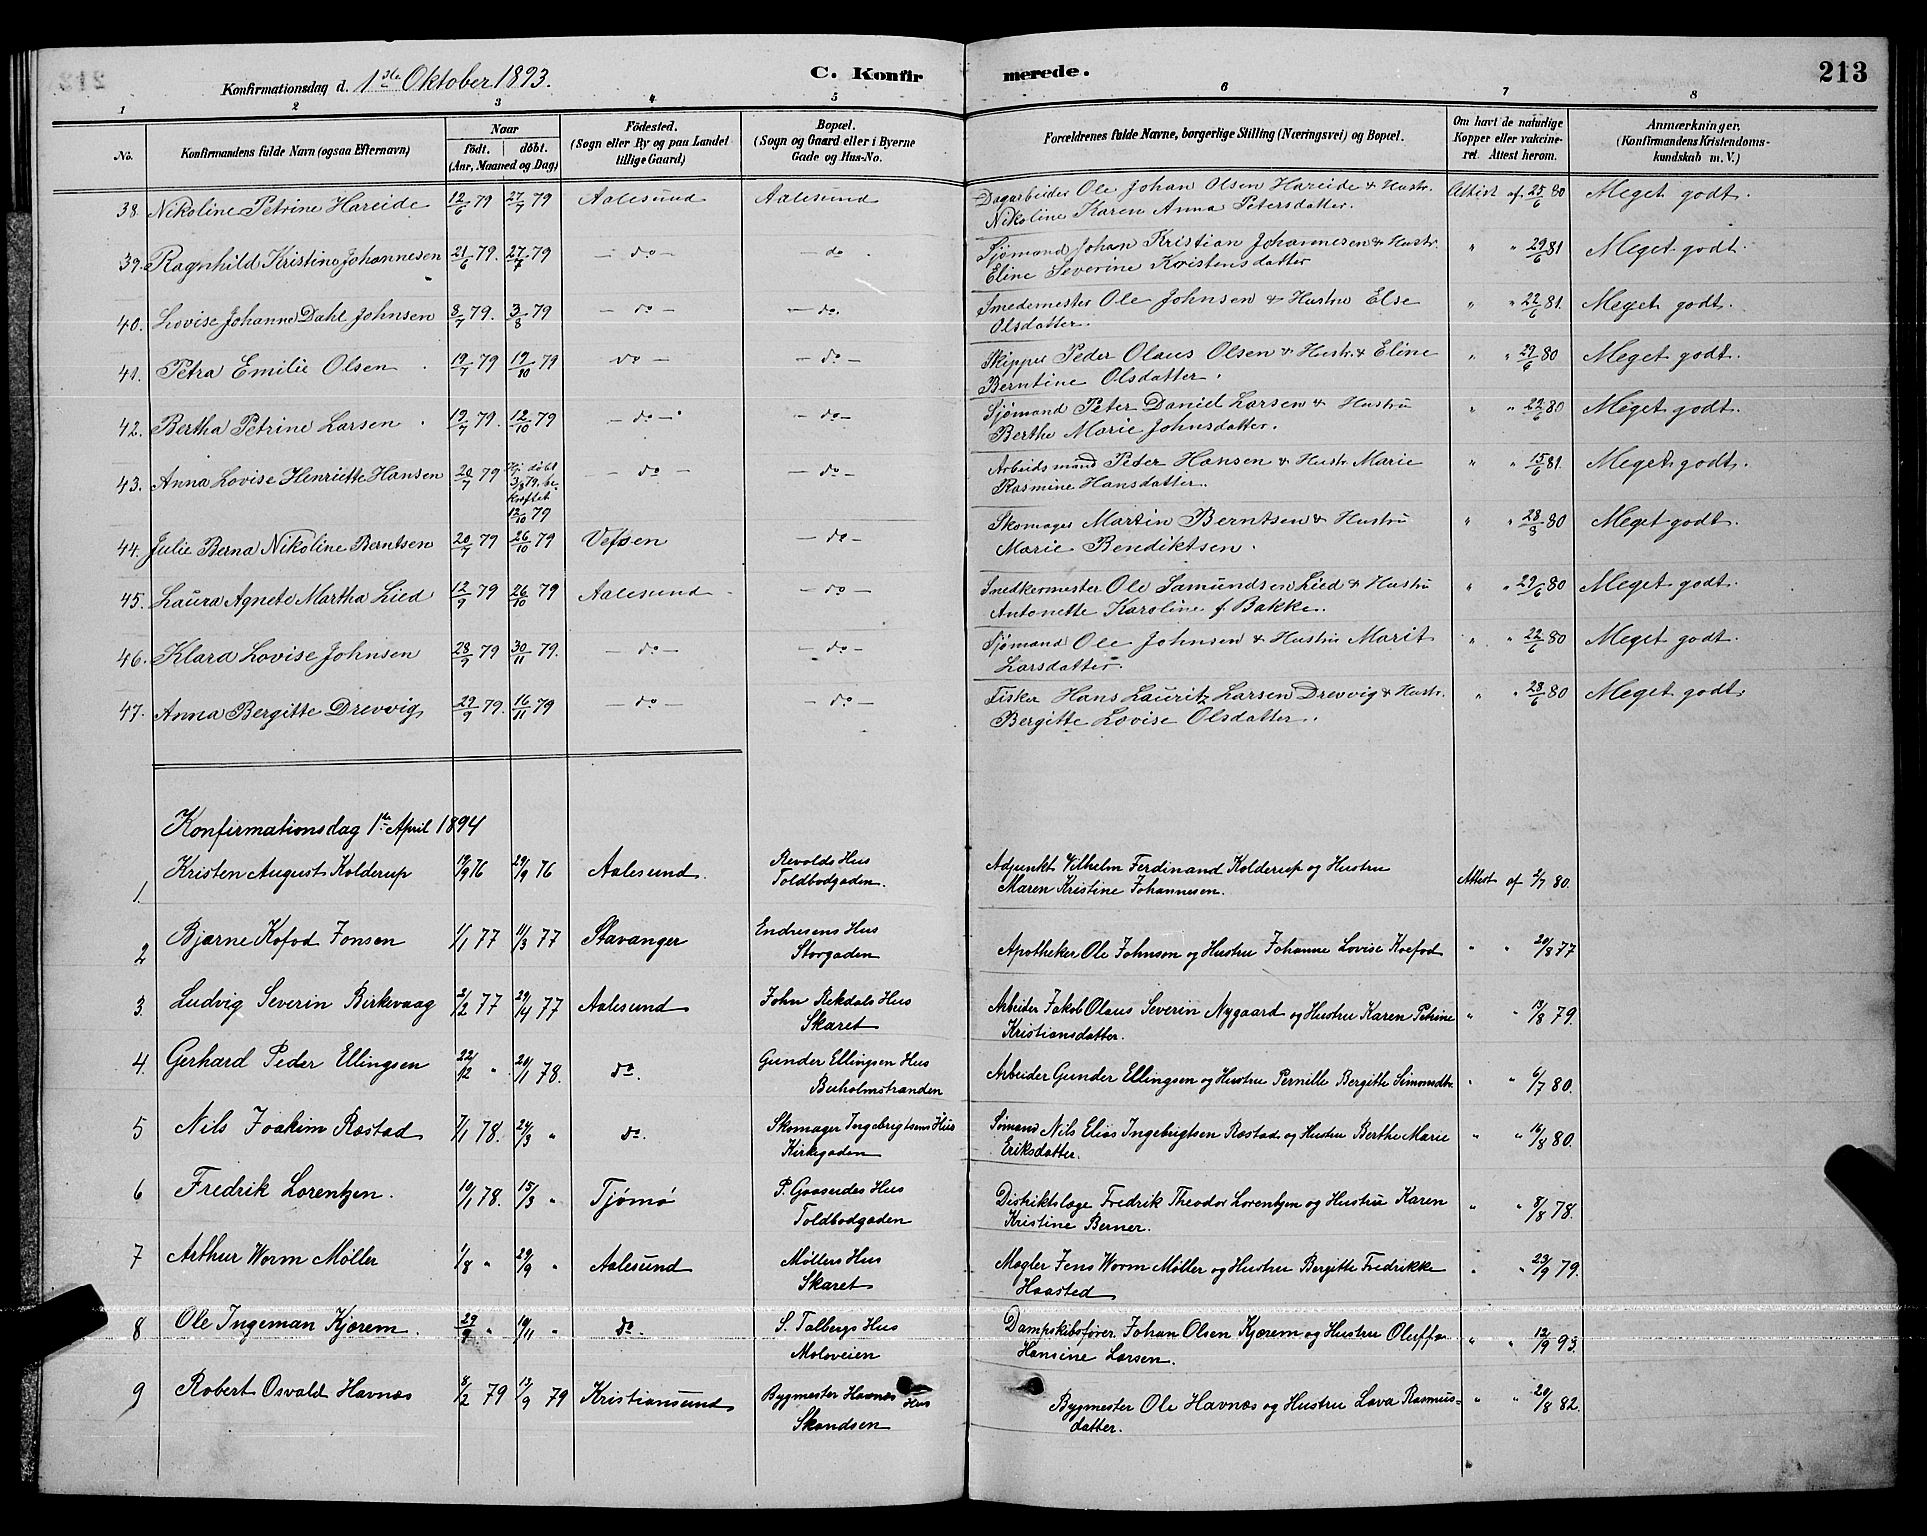 213
C. Konfirmerede.
Konfirmationsdag d. 1ste Oktober 1893.
1 2 3 4 5 6 7 8
No. Konfirmandens fulde Navn (ogsaa Efternavn) Naar födt. döbt. (Aar, Maaned og Dag) Födested. (Sogn eller By og paa Landet tillige Gaard) Bopæl. (Sogn og Gaard eller i Byerne Gade og Hus-No. Forældrenes fulde Navne, borgerlige Stilling (Næringsvei) og Bopæl. Om havt de naturlige Kopper eller vakcineret. Attest herom. Anmærkninger. (Konfirmandens Kristendomskundskab m. V.)
38. Nikoline Petrine Hareide 12/6 79 27/7 79 Aalesund Aalesund Dagarbeider Ole Johan Olsen Hareide & Hustr. Attest af 25/6 80 Meget godt.
Nikoline Karen Anna Petersdatter.
39. Ragnhild Kristine Johannesen 21/6 79. 27/7 79 - do - - do - Sjømand Johan Kristian Johannesen & Hustr. " " 29/6 81 Meget godt.
Eline Severine Kristensdatter
40. Lovise Johanne Dahl Johnsen 8/7 79. 3/8 79 - do - - do. Smedemester Ole Johnsen & Hustru Else " " 22/6 81. Meget godt.
Olsdatter.
41. Petra Emilie Olsen 19/7 79 19/10 79 do - - do - Skipper Peder Olaus Olsen & Hustr. Eline " " 29/6 80 Meget godt.
Berntine Olsdatter.
42. Bertha Petrine Larsen 19/7 79. 12/10 79 - do - - do - Sjømand Peter Daniel Larsen & Hustru " " 22/6 80 Meget godt.
Berthe Marie Johnsdatter.
43. Anna Lovise Henriette Hansen 20/7 79 Hj. døbt 3/8 79. bekræftet 12/10 79 - do - - do - Arbeidsmand Peter Hansen & Hustr. Marie " " 15/6 81. Meget godt.
Rasmine Hansdatter.
44. Julie Berna Nikoline Berntsen 20/7 79 26/10 79 Vefsen - do - Skomager Martin Berntsen & Hustru " " 28/8 80 Meget godt.
Marie Bendiktsen.
45. Laura Agnete Martha Lied 12/9 79 26/10 79 Aalesund - do - Snedkermester Ole Samundsen Lied & Hustru " " 29/6 80 Meget godt.
Antonette Karoline f. Bakke.
46. Klara Lovise Johnsen 28/9 79 30/11 79. - do - - do - Sjømand Ole Johnsen & Hustru Marit " " 22/6 80 Meget godt.
Larsdatter.
47. Anna Bergitte Drevvig 29/9 79. 16/11 79 - do - - do - Fisker Hans Lauritz Larsen Drevvig & Hustr. " " 28/6 80 Meget godt.
Bergitte Lovise Olsdatter.
Konfirmationsdag 1te April 1894
1 Kristen August Kolderup 19/9 76 29/9 76 Aalesund. Revolds Hus Adjunkt Vilhelm Ferdinand Kolderup og Hustru Attest af 2/7 80.
Toldbodgaden. Maren Kristine Johannesen.
2 Bjarne Kofod Jonsen 1/1 77 11/3 77 Stavanger Endresens Hus Apotheker Ole Johnson og Hustru Johanne Lovise Koefod " " 20/8 77
Storgaden
3. Ludvig Severin Birkevaag 2/2 77 29/4 77 Aalesund John Rekdals Hus Arbeider Jakob Olaus Severin Nygaard og Hustru Karen Petrine " " 17/8 79.
Skaret Kristiansdatter.
4. Gerhard Peder Ellingsen 22/12 " 20/1 78. do. Gunder Ellingsen Hus Arbeider Gunder Ellingsen og Hustru Pernille Bergitte Simonsdtr. " " 6/7 80.
Buholmstranden
5 Nils Joakim Rostad 7/1 78. 24/3 " do. Skomager Ingebrigtsens Hus Sømand Nils Elias Ingebrigtsen Rostad og Hustru Berthe Marie " " 16/8 80.
Kirkegaden Eriksdatter.
6 Fredrik Lorentzen. 10/1 78. 15/3 " Tjømø P. Gaaserdes Hus Distriktslæge Fredrik Theodor Lorentzen og Hustru Karen " " 8/8 78.
Toldbodgaden Kristine Berner.
7 Arthur Worm Møller 1/8 " 29/9 " Aalesund Møllers Hus Mægler Jens Worm Møller og Hustru Bergitte Fredrikke " " 23/9 79.
Skaret Haasted
8 Ole Ingeman Kjærem. 29/9 " 10/11 " do. S. Talbergs Hus Dampskibsfører Johan Olsen Kjærem og Hustru Oluffa " " 12/9 93.
Moloveien Hansine Larsen.
9 Robert Osvald Havnæs 8/2 79 13/9 79 Kristiansund Bygmester Havnæs Hus Bygmester Ole Havnæs og Hustru Lava Rasmus- " " 20/8 82.
Skandsen datter.